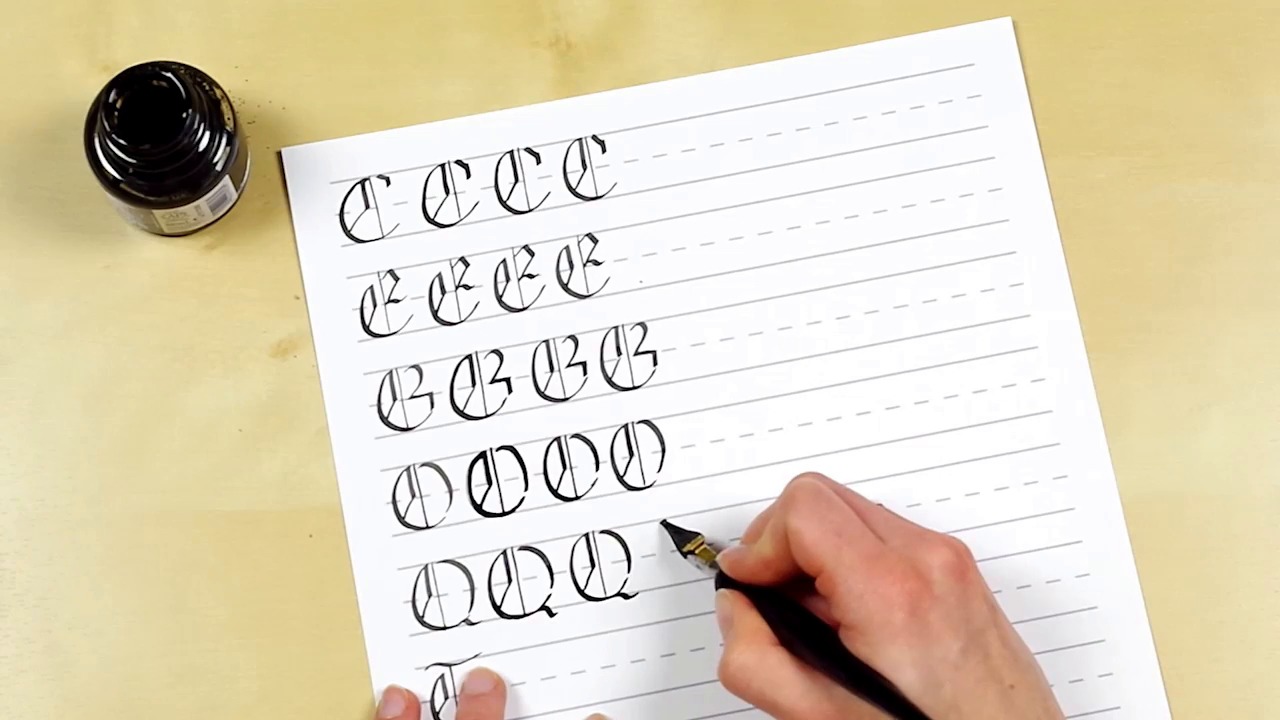 C C C C
E E E E
G G G G
O O O O
Q Q Q
T